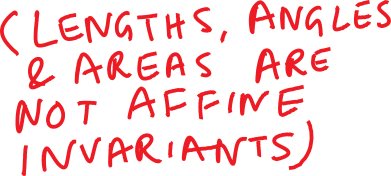 (LENGTHS, ANGLES
& AREAS ARE
NOT AFFINE
INVARIANTS)